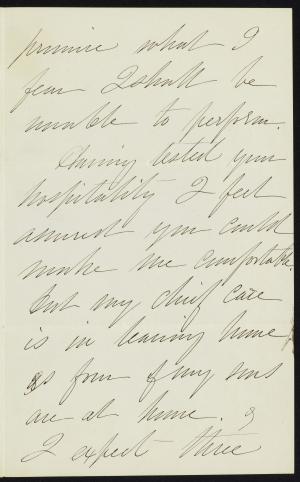 promise what I
fear I shall be
unable to perform.
Having tested your
hospitality I feel
assured you could
make me comfortable.
but my chief care
is in leaving home
as four of my sons
are at home. &
I expect three